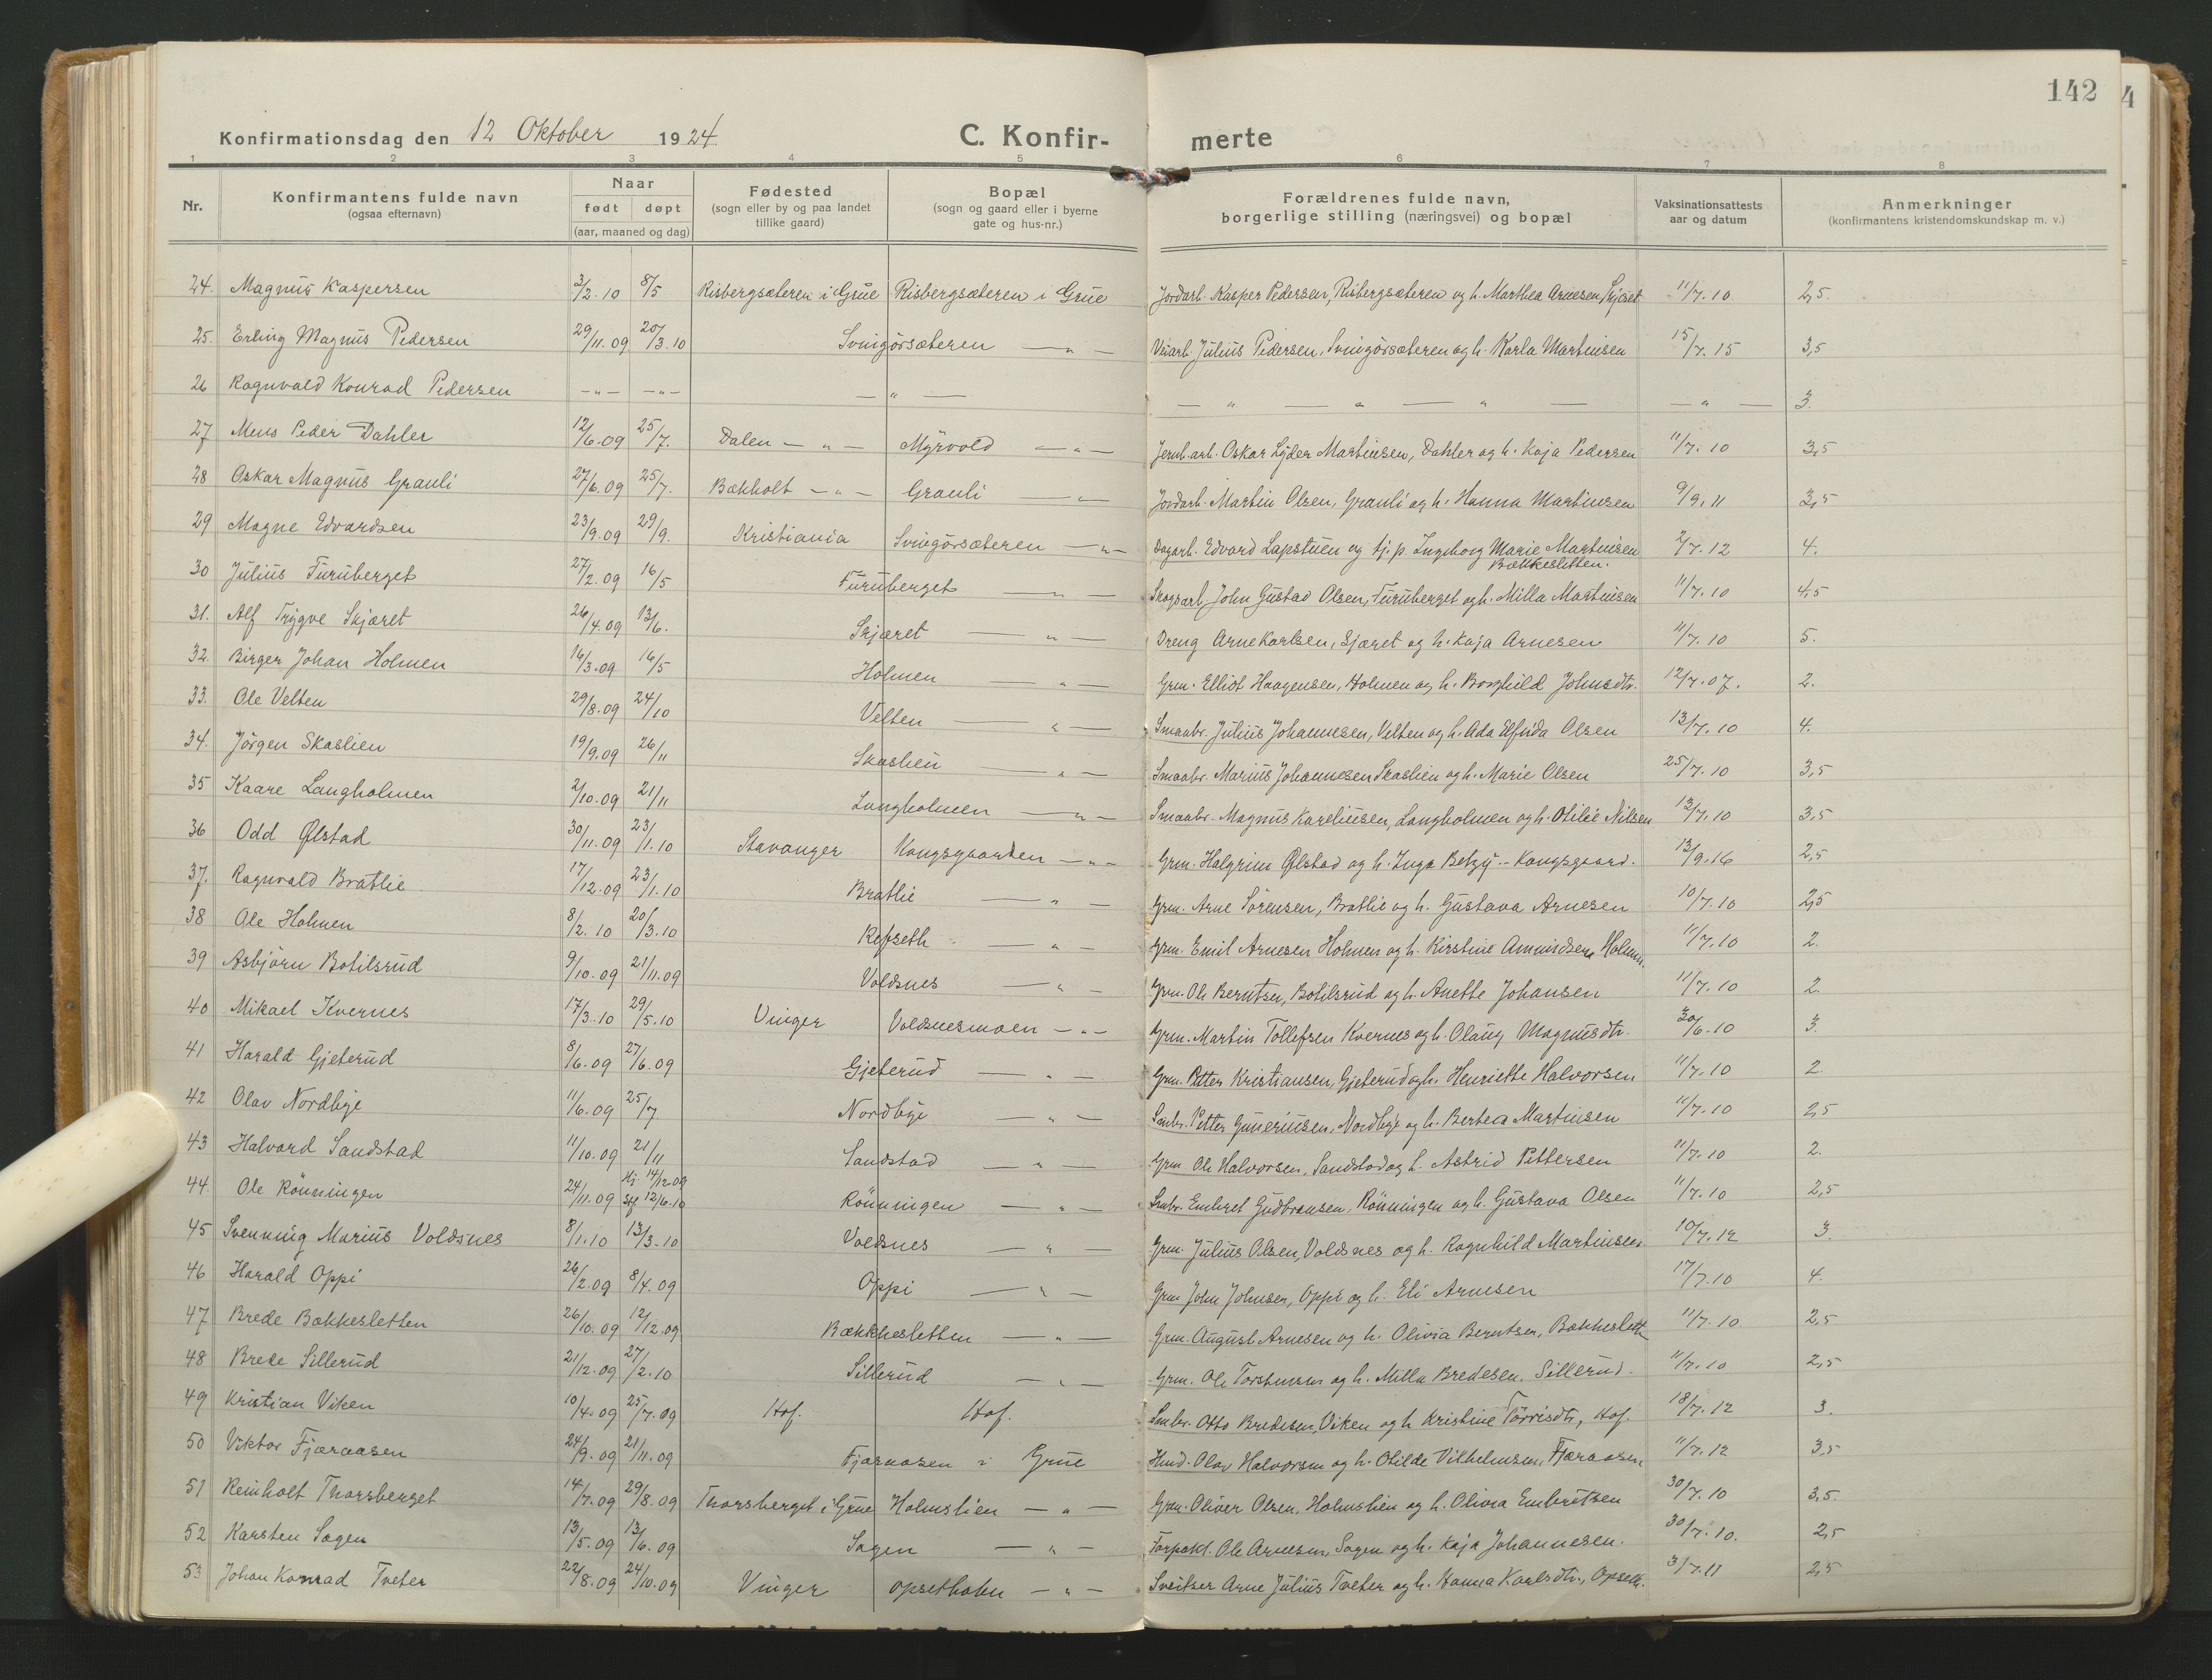 142
Konfirmationsdag den 12 Oktober 1924
C. Konfir- merte
1 2 3 4 5 6 7 8
Nr. Konfirmantens fulde navn (ogsaa efternavn) Naar født døpt (aar, maaned og dag) Fødested (sogn eller by og paa landet tillike gaard) Bopæl (sogn og gaard eller i byerne gate og hus-nr.) Forældrenes fulde navn, borgerlige stilling (næringsvei) og bopæl Vaksinationsattests aar og datum Anmerkninger (konfirmantens kristendomskundskap m. v.)
24. Magnus Kaspersen 3/2.10 8/5 Risbergsæteren i Grue Risbergsæteren i Grue Jordarb. Kasper Pedersen, Risbergsæteren og h. Marthea Arnesen, Skjæret 11/7.10 2,5.
25. Erling Magnus Pedersen 29/11.09 20/3.10 Svingörsæteren —„— Veiarb. Julius Pedersen, Svingörsæteren og h. Karla Martinsen 15/7.15 3,5
26 Ragnvald Konrad Pedersen —„— —„— —„— —„— —„— —„— —„— 3.
27 Mens Peder Dahler 12/6.09 25/7. Dalen —„— Myrvold —„— Jernb.arb. Oskar Lyder Martinsen, Dahler og h. Kaja Pedersen 11/7.10 3,5
28 Oskar Magnus Granli 27/6.09 25/7. Bækholt —„— Granli —„— Jordarb. Martin Olsen, Granli og h. Hanna Martinsen 9/9.11 3,5
29 Magne Edvardsen 23/9.09 29/9. Kristiania Svingörsæteren —„— Dagarb. Edvard Lapstuen og tj.p. Ingeborg Marie Martinsen Bækkesletten. 2/7.12 4.
30 Julius Furuberget 27/2.09 16/5 Furuberget —„— Skogsarb. John Gustav Olsen, Furuberget og h. Milla Martinsen 11/7.10 4,5
31. Alf Trygve Skjæret 26/4.09 13/6. Skjæret —„— Dreng Arne Karlsen, Sjæret og h. Kaja Arnesen 11/7.10 5.
32. Birger Johan Holmen 16/3.09 16/5 Holmen —„— Grm. Elliot Haagensen, Holmen og h. Borghild Johnsdtr. 12/7.07. 2.
33. Ole Velten 29/8.09 24/10 Velten —„— Smaabr. Julius Johannesen, Velten og h. Ada Elfrida Olsen 13/7.10 4.
34. Jörgen Skaslien 19/9.09 26/11 Skaslien —„— Smaabr. Marius Johannesen Skaslien og h. Marie Olsen 25/7.10 3,5
35 Kaare Langholmen 2/10.09 21/11 Langholmen —„— Smaabr. Magnus Kareliusen, Langholmen og h. Otilie Nilsen 12/7.10 3,5
36 Odd Ølstad 30/11.09 23/1.10 Stavanger Kongsgaarden —„— Grm. Halgrim Ølstad og h. Inga Betzy - Kongsgaard. 13/9.16 2,5
37. Ragnvald Bratlie 17/12.09 23/1.10 Bratlie —„— Grm. Arne Sörensen, Bratlie og h. Gustava Arnesen 10/7.10 2,5
38 Ole Holmen 8/2.10 20/3.10 Refseth —„— Grm. Emil Arnesen Holmen og h. Kirstine Amundsen Holmen. 11/7.10 2.
39 Asbjörn Botilsrud 9/10.09 21/11.09 Voldsnes —„— Grm. Ole Berntsen, Botilsrud og h. Anette Johansen 11/7.10 2.
40 Mikael Kvernes 17/3.10 29/5.10 Vinger Voldsnesmoen —„— Grm. Martin Tollefsen Kvernes og h. Olaug Magnusdtr. 30/6.10 3.
41 Harald Gjeterud 8/6.09 27/6.09 Gjeterud —„— Grm. Petter Kristiansen, Gjeterud og h. Henriette Halvorsen 11/7.10 2.
42 Olav Nordbye 11/6.09 25/7 Nordbye —„— Smbr. Petter Guneriusen, Nordbye og h. Bertea Martinsen 11/7.10 2,5
43 Halvard Sandstad 11/10.09 21/11 Sandstad —„— Grm Ole Halvorsen, Sandstad og h. Astrid Pettersen 11/7.10 2.
44. Ole Rönningen 24/11.09 Hj. 14/12.09 Stf 12/6.10 Rönningen —„— Smbr. Embret Gudbransen, Rönningen og h. Gustava Olsen 11/7.10 2,5
45 Svenning Marius Voldsnes 8/1.10 13/3.10 Voldsnes —„— Grm. Julius Olsen, Voldsnes og h. Ragnhild Martinsen. 10/7.12 3.
46 Harald Oppi 26/2.09 8/4.09 Oppi —„— Grm John Johnsen, Oppi og h. Eli Arnesen 17/7.10 4.
47 Brede Bækkesletten 26/10.09 12/12.09 Bækkesletten —„— Grm. August Arnesen og h. Olivia Berntsen, Bækkeslett 11/7.10 2,5
48 Brede Sillerud 21/12.09 27/2.10 Sillerud —„— Grm. Ole Torstensen og h. Milla Bredesen. Sillerud. 11/7.10 2,5
49 Kristian Viken 10/4.09 25/7.09 Hof. Hof. Smbr. Otto Bredesen, Viken og h Kristine Törrisdtr, Hof. 18/7.12 3.
50 Viktor Fjæraasen 24/9.09 21/11.09 Fjæraasen i Grue Hmd. Olav Halvorsen og h. Otilde Vilhelmsen, Fjæraasen 11/7.12 3,5
51 Reinholt Thorsberget 14/7.09 29/8.09 Thorsberget i Grue Holmslien —„— Grm. Oliver Olsen, Holmslien og h. Olivia Embretsen 30/7.10 3,5.
52 Karsten Sagen 13/5.09 13/6.09 Sagen —„— Forpakt. Ole Arnesen, Sagen og h. Kaja Johannesen. 30/7.10. 2,5
53 Johan Konrad Tveter 22/8.09 24/10.09 Vinger Opsetholm —„— Sveitser Arne Julius Tveter og h. Hanna Karlsdtr., Opseth. 3/7.11 2,5